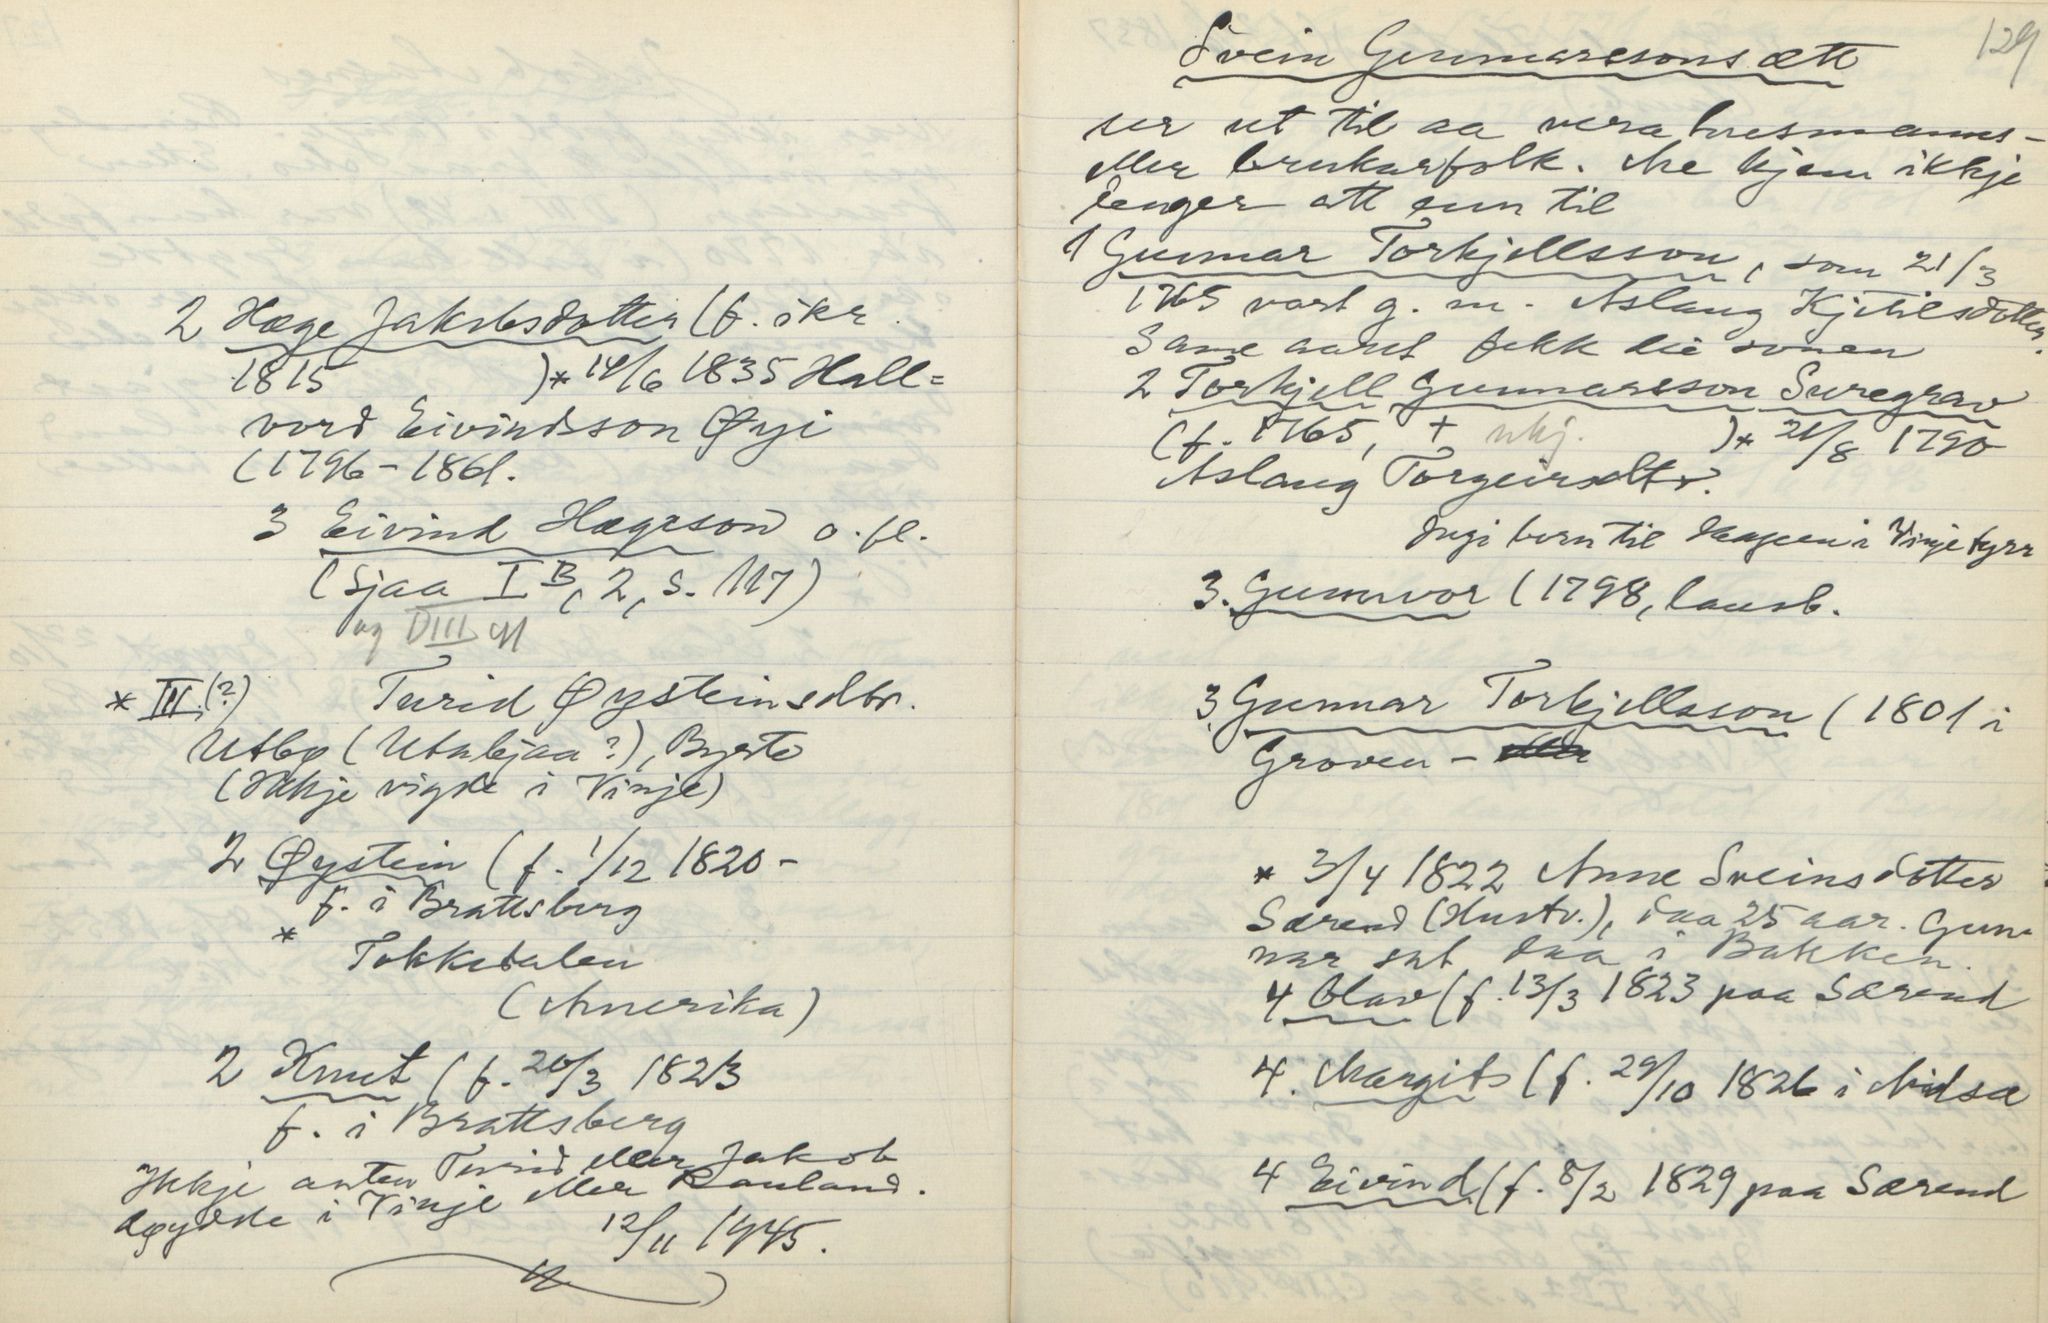 2 Hæge Jakobsdotter (f. ikr.
1815 )* 14/6 1835 Hall=
vord Eivindsson Øyi
(1796-1861.
3 Eivind Hægeson o. fl.
(Sjaa I B, 2, s. 117)
og DIII 91
* III.(?) Turid Øysteinsdtr.
Utbø (Utabjaa?), Byrte
(Ikkje vigde i Vinje)
2 Øystein (f. 1/12 1820 -
f. i Brattsberg
* Tokkedalen
(Amerika)
2 Knut (f. 20/3 1823
f. i Brattsberg
Ikkje anten Turid eller Jakob
døydde i Vinje eller Rauland.
12/11 1945.
129
Svein Gunnarssons ætt
ser ut til aa vera husmanns-
eller brukarfolk. Me kjem ikkje
lenger att enn til
1 Gunnar Torkjellsson, som 21/3
1765 vart g. m. Aslaug Kjetilsdotter.
Same aaret fekk dei sonen
2 Torkjell Gunnarsson Suregrav
(f. 1765, + ukj. )* 21/8 1790
Aslaug Torgeirsdtr.
Ingi born til i Vinje fyrr
3. Gunnvor (1798, lausb.
3. Gunnar Torkjellsson (1801 i
Groven -
* 3/4 1822 Anne Sveinsdotter
Særend (Hustv.), daa 25 aar. Gun-
nar sat daa i Bakken.
4 Olav (f. 13/3 1823 paa Særend
4. Margit (f. 29/10 1826 i Midsæ
4 Eivind (f. 8/2 1829 paa Særend